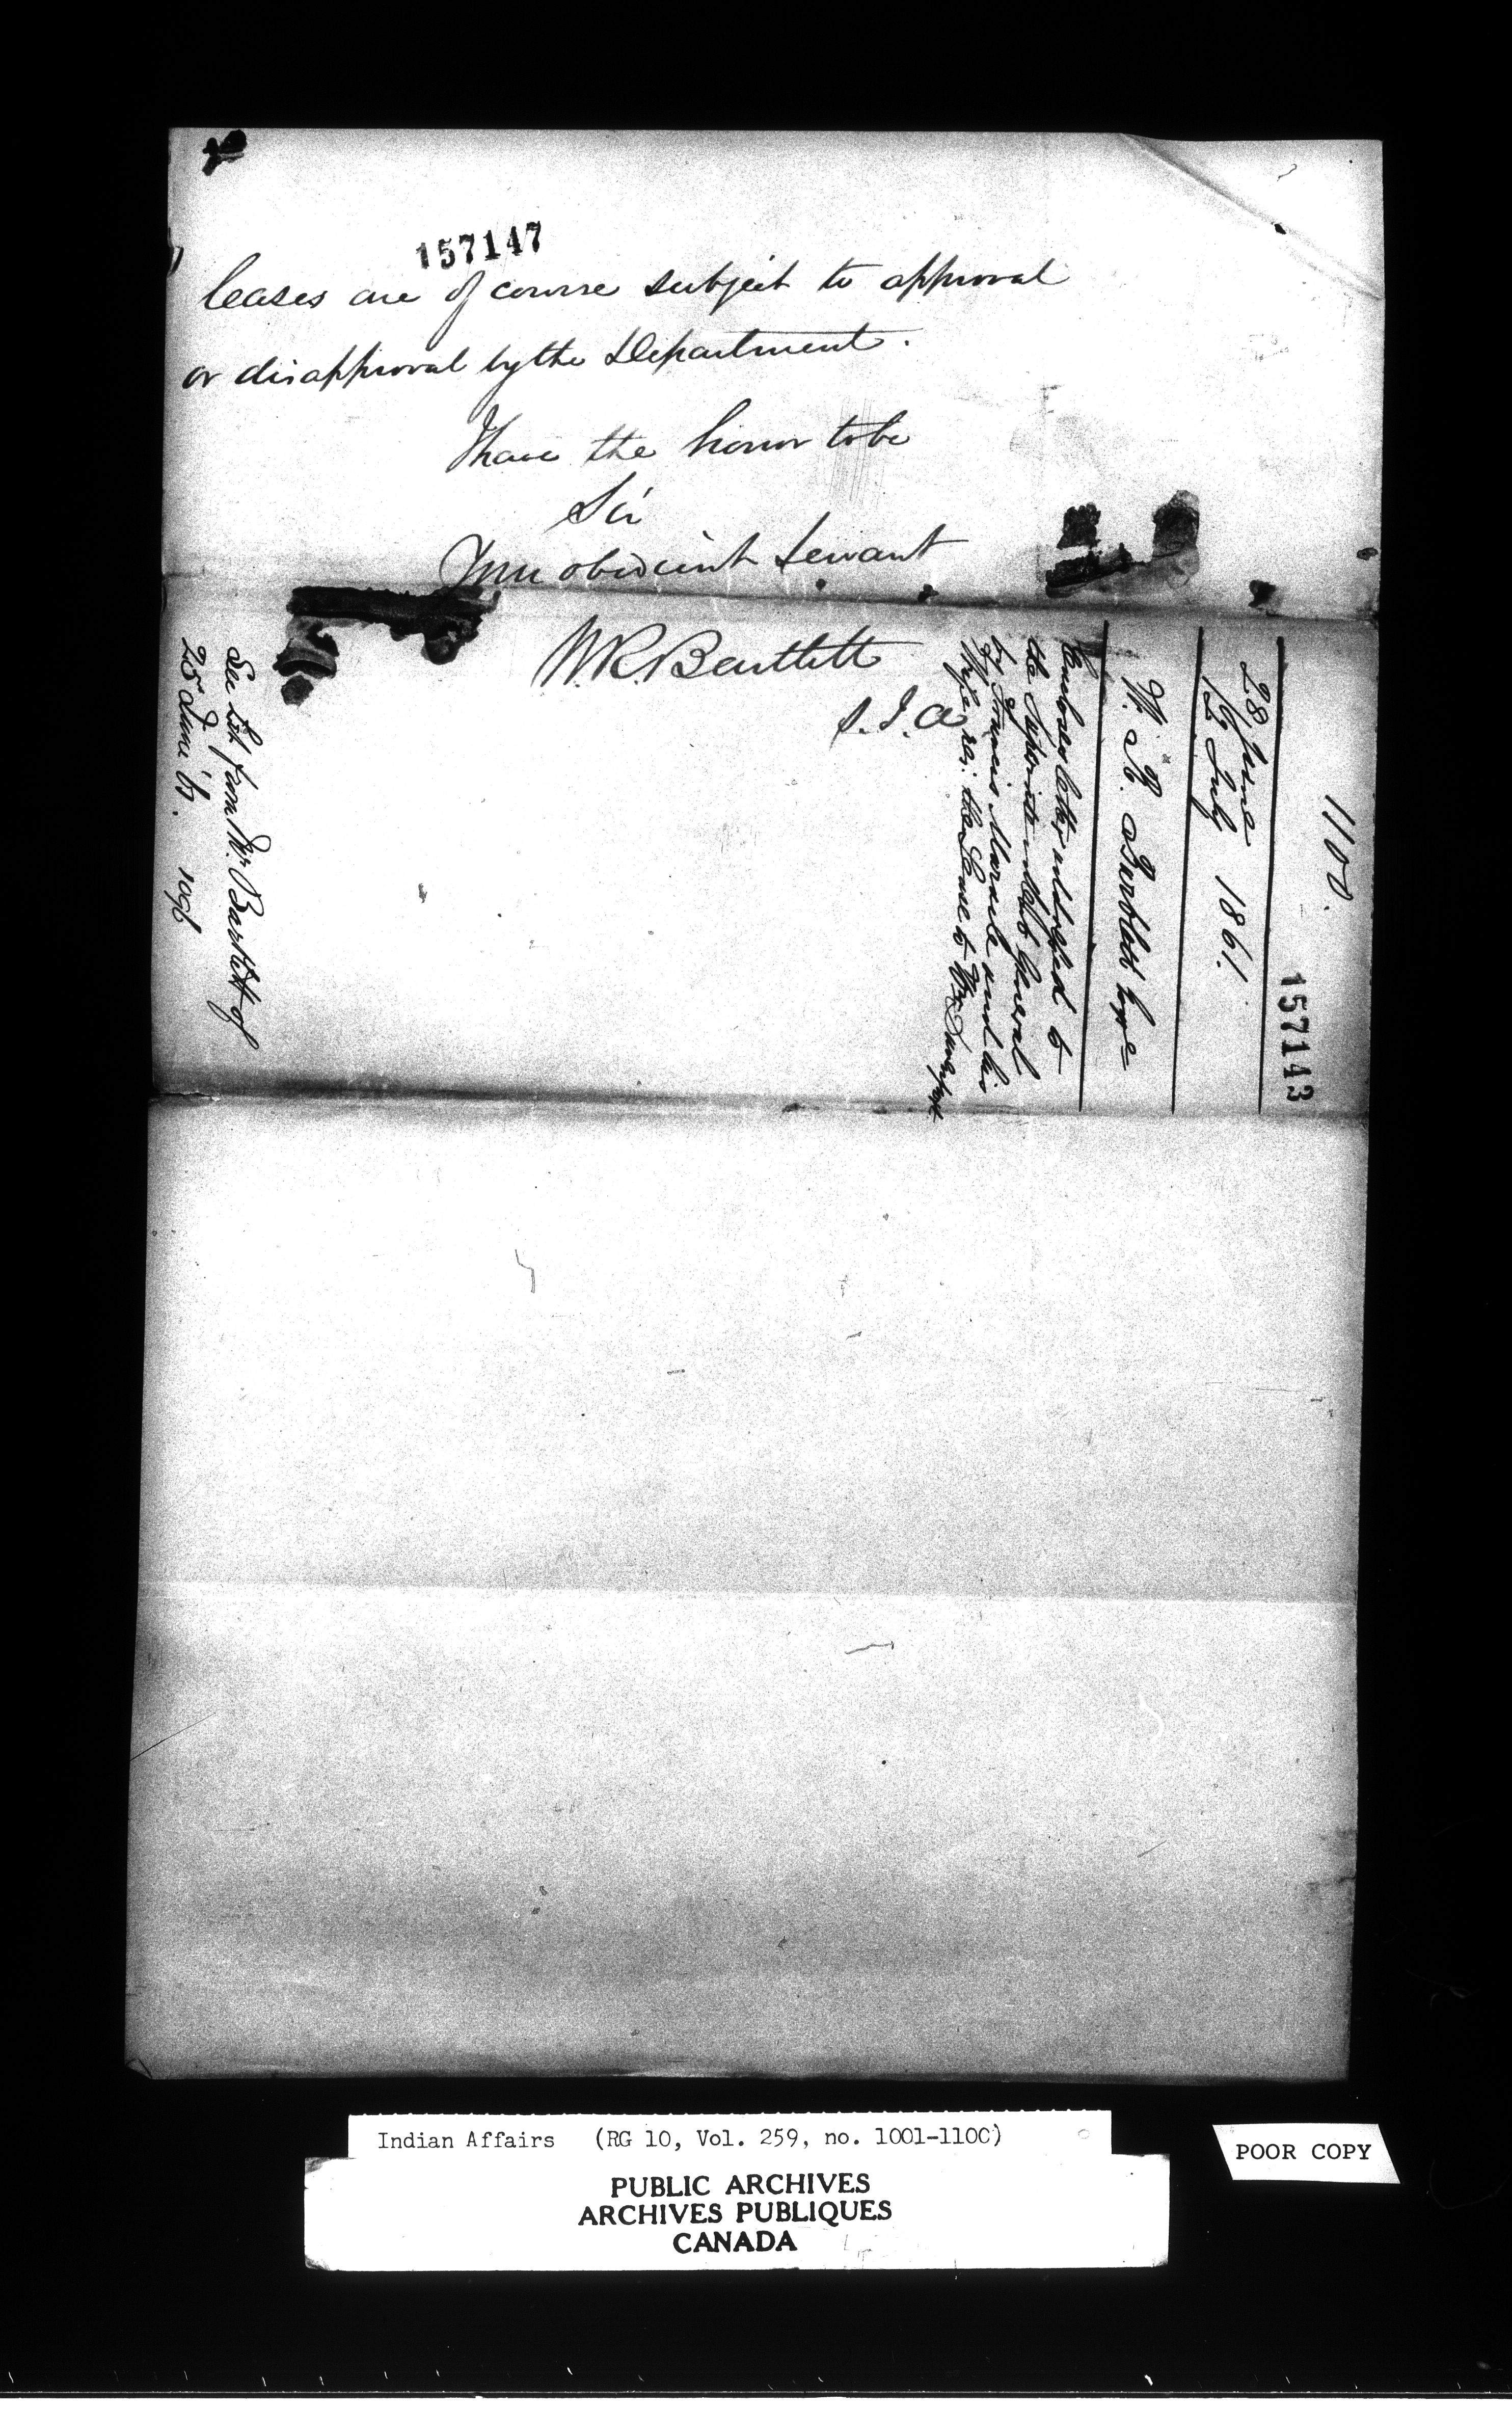 157147
leases are of course subject to approval
or disapproval by the Department.
I have the honor to be
Sir
Your obedient Servant
W.R. Bartlett
S.I.A
1100.
157143
28 June
12 July 1861.
W. R. Bartlett Esqre
Encloses letter addressed to
the Superintendent General
by Francis Maracle and his
Wife, re: the Lease to Wm Davenport
See let from Mr. Bartlett of
25 June '61. 1096
Indian Affairs (RG 10, Vol. 259, no. 1001-1100)
PUBLIC ARCHIVES
ARCHIVES PUBLIQUES
CANADA
POOR COPY